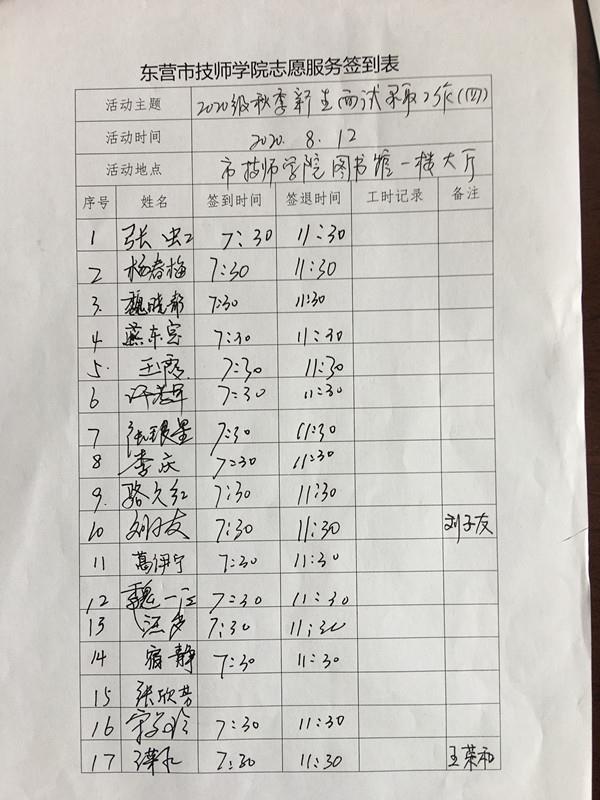 东营市技师学院志愿服务签到表
活动主题 2020级秋季新生面试录取工作(四)
活动时间 2020.8.12
活动地点 市技师学院图书馆一楼大厅
序号 姓名 签到时间 签退时间 工时记录 备注
1 张 7:30 11:30
2 杨春梅 7:30 11:30
3. 魏晓 7:30 11:30
4 燕东 7:30 11:30
5. 王霞 7:30 11:30
6 许 7:30 11:30
7 张银星 7:30 11:30
8 李庆 7:30 11:30
9. 骆久红 7:30 11:30
10 刘子友 7:30 11:30 刘子友
11 葛伊宁 7:30 11:30
12 魏一江 7:30 11:30
13 汪 7:30 11:30
14 宿静 7:30 11:30
15 张欣芳
16 宋 7:30 11:30
17 7:30 11:30 王荣和